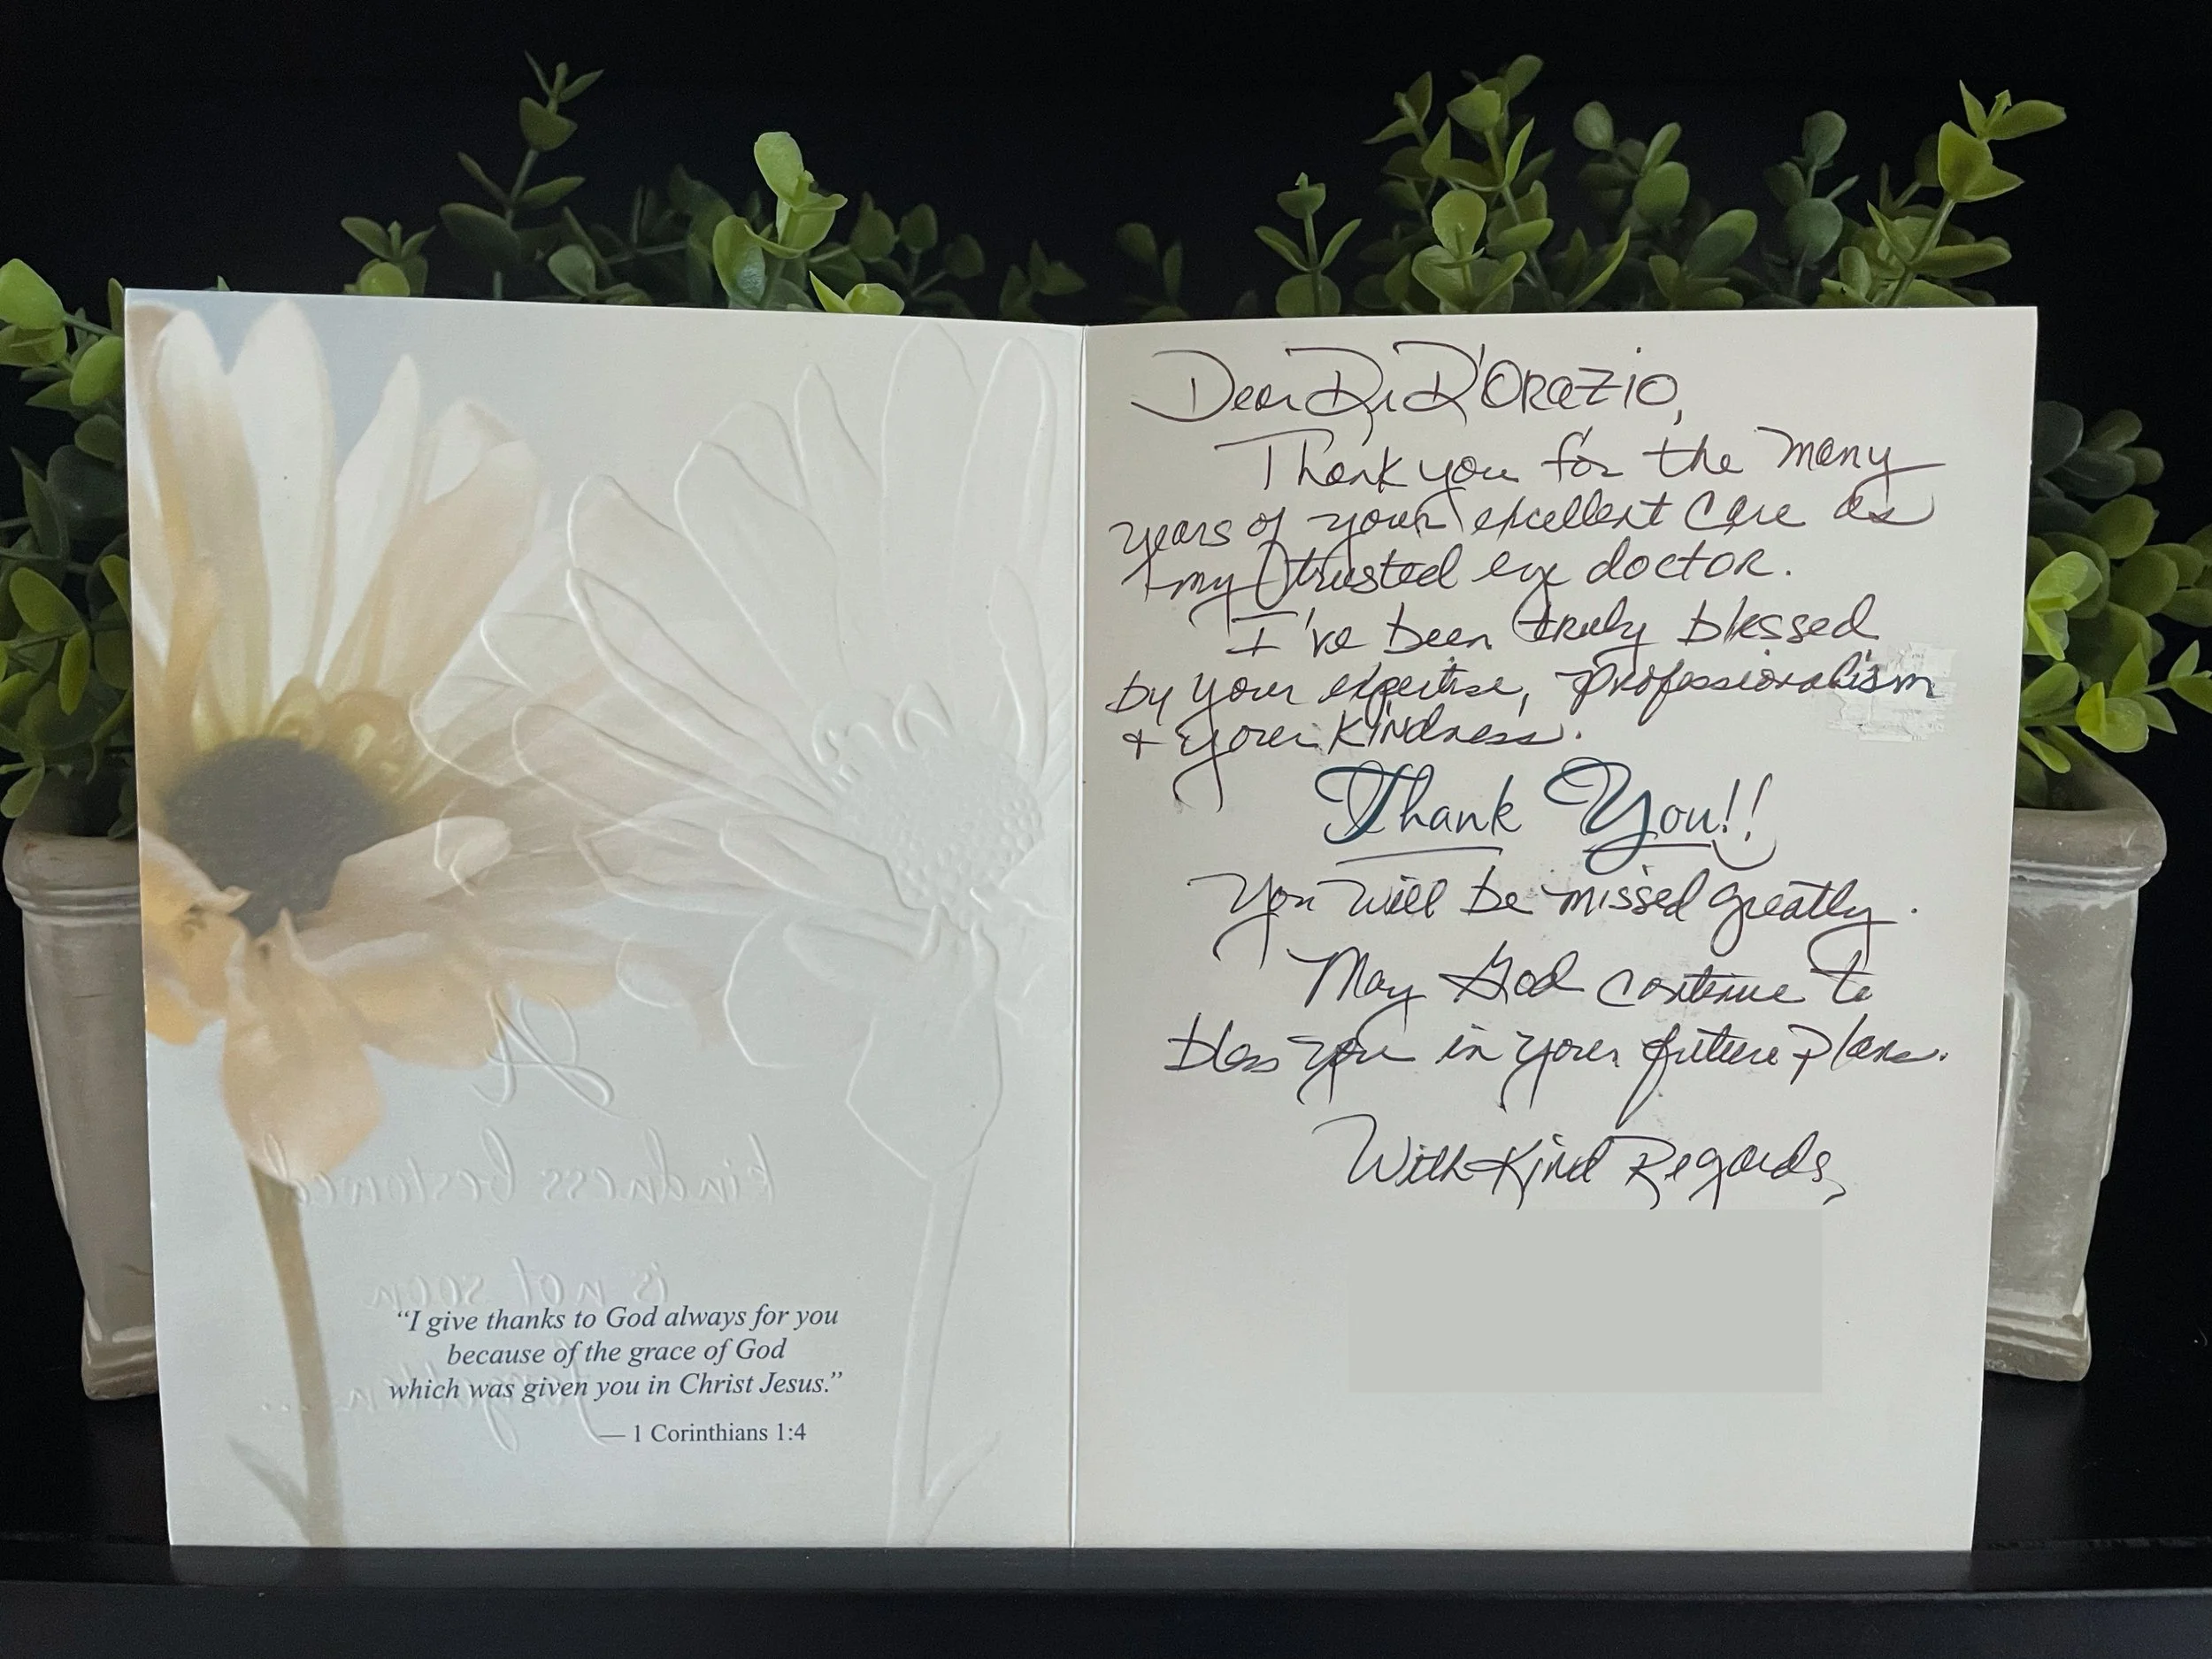 A
kindness bestowed
is not soon
forgotten...
“I give thanks to God always for you
because of the grace of God
which was given you in Christ Jesus.”
— 1 Corinthians 1:4
Dear Dr D'Orazio,
Thank you for the many
years of your excellent care as
my trusted eye doctor.
I've been truly blessed
by your expertise, professionalism
+ your kindness.
Thank You!!
You will be missed greatly.
May God continue to
bless you in your future plans.
With Kind Regards,